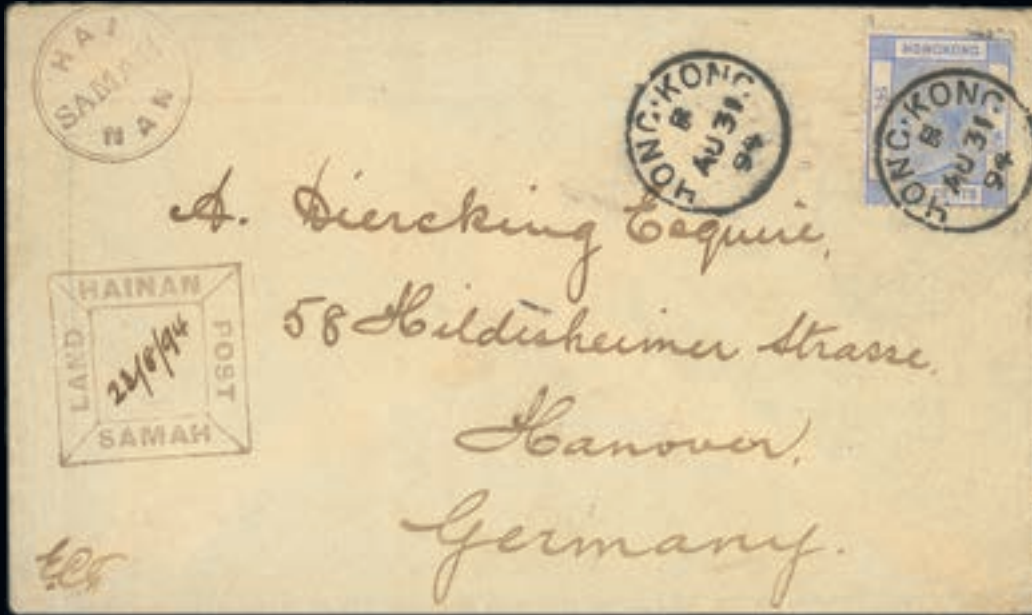 HAI
SAMAH
NAN
HONG·KONG
B
AU 31
94
HONGKONG
HONG·KONG
B
AU 31
94
A. Diercking Esquire,
58 Hildisheimer Strasse,
Hanover,
Germany.
HAINAN
LAND
POST
SAMAH